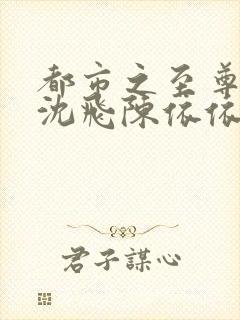 都市之至尊
沈飛陳依依
君子謀心